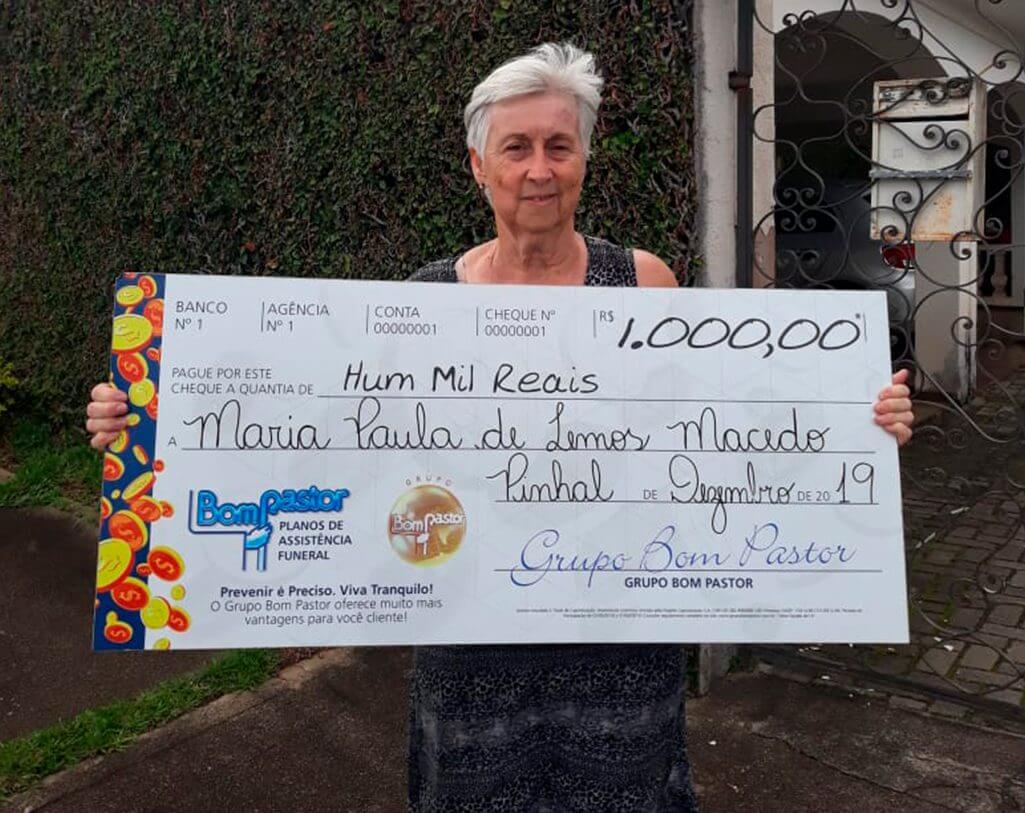 BANCO Nº 1
AGÊNCIA Nº 1
CONTA 00000001
CHEQUE Nº 00000001
R$ 1.000,00*
PAGUE POR ESTE CHEQUE A QUANTIA DE Hum Mil Reais
A Maria Paula de Lemos Macedo
Pinhal DE Dezembro DE 2019
BomPastor
PLANOS DE
ASSISTÊNCIA
FUNERAL
GRUPO
BomPastor
Grupo Bom Pastor
GRUPO BOM PASTOR
Prevenir é Preciso. Viva Tranquilo!
O Grupo Bom Pastor oferece muito mais
vantagens para você cliente!